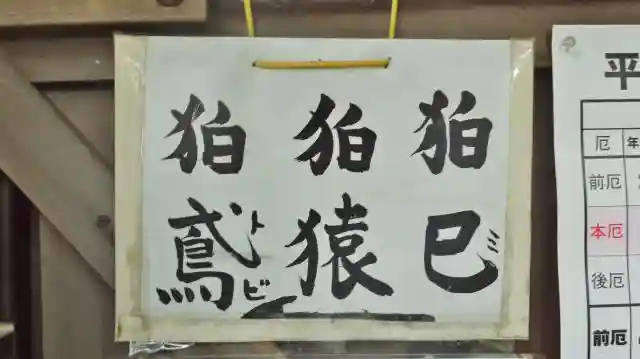 狛巳
ミ
狛猿
狛鳶
トビ
平
厄 年
前厄
本厄
後厄
前厄